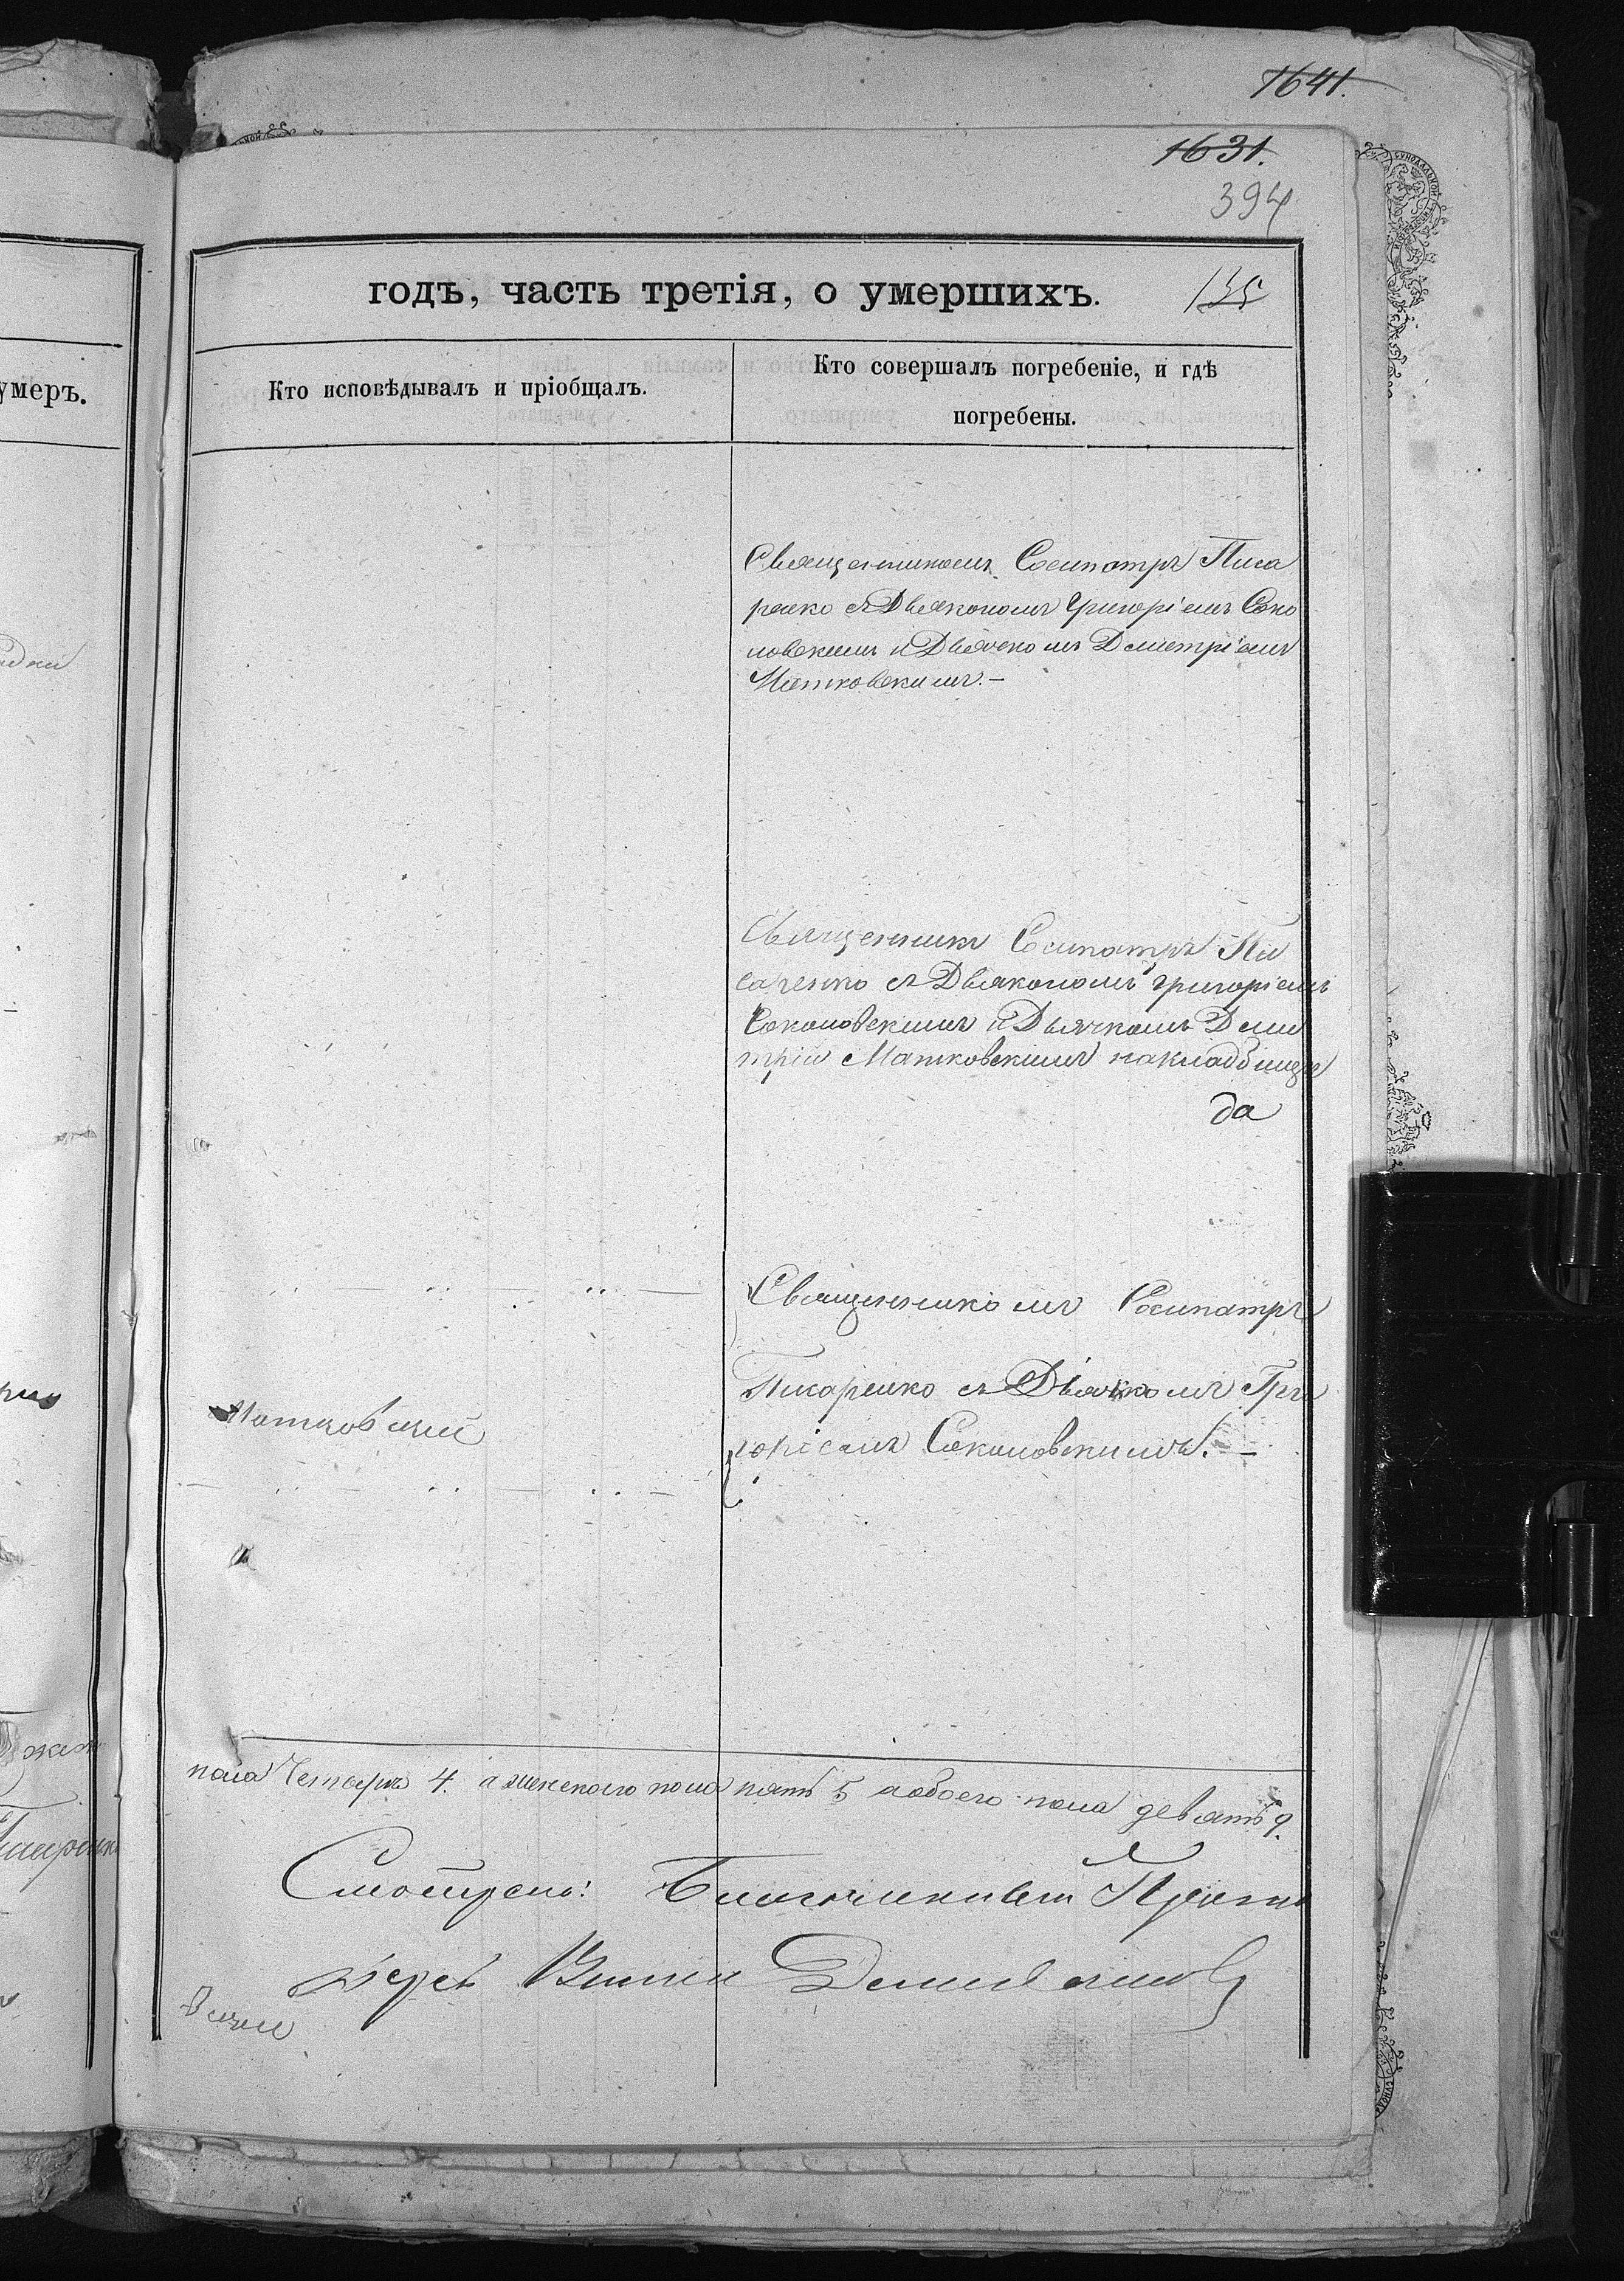 1641.
1631.
394
годъ, часть третія, о умершихъ.
135
умеръ.
Кто исповѣдывалъ и пріобщалъ.
Кто совершалъ погребеніе, и гдѣ
погребены.
Священникомъ Сосипатръ Писа
ренко съ Дьякономъ Григоріемъ Соко
ловскимъ и Дьячкомъ Дмитріемъ
Матковскимъ.—
Священникъ Сосипатръ Пи
саренко съ Дьякономъ Григоріемъ
Соколовскимъ и Дьячкомъ Дми
трій Матковскимъ на кладбище
да
Священникомъ Сосипатръ
Писаренко съ Дьячкомъ Гри
горіемъ Соколовскимъ.—
Матковскій
пола Четыре 4. а женскаго пола пять 5 а обоего пола девять 9.
Смотрено: Благочинный Прото
іерей